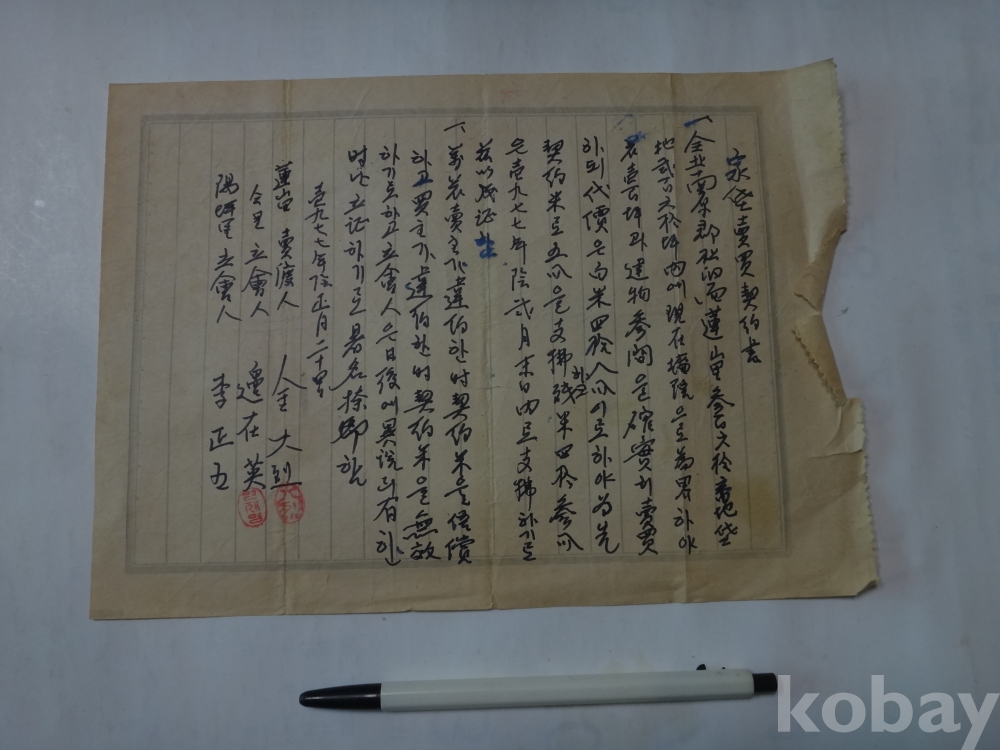 家垈賣買契約書
一、全北南原郡 面蓮山里參百六拾 垈地
地貳百六拾坪內에現在墻垣으로爲界하야
壹百坪과建物參間을確實히賣買
하되代價은白米四拾八叺이로하야爲先
契約米로五叺을支拂하고殘米四拾參叺
은壹九七七年陰貳月末日內로支拂하기로
玆以成証
一、萬若賣主가違約한時契約米을倍償
하고買主가違約한時契約米을無效
하기로하고立會人은日後에異說이有한
時난立証하기로署名捺印함
壹九七七年陰正月二十
蓮山 賣渡人 金大烈
仝里 立會人 邊在英
陽 里立會人 李正五
kobay